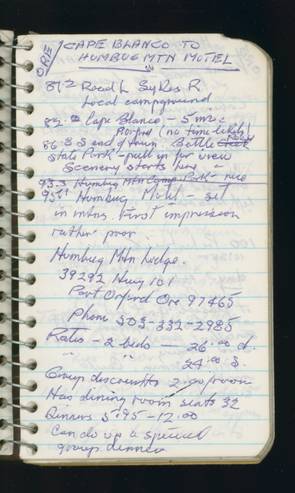 ORE
CAPE BLANCO TO
HUMBUG MTN MOTEL
81.2 Road L Sykes R
Local campground
82. Cape Blanco - 5 mi
Airport (no time likely)
86.3 S end of town Battle Rock
State Park - pull in for view
Scenery starts here
93.3 Humbug Mtn Camp Park - nice
95.1 Humbug Motel - set
in mtns. First impression
rather poor
Humbug Mtn Lodge.
39292 Hwy 101
Port Orford Ore 97465
Phone 503-332-2985
Rates - 2 beds — 26.00 d.
" " 24.00 S.
Group discounts 2.00/room
Has dining room seats 32
Dinners 5.95 - 12.00
Can do up a special
group dinner